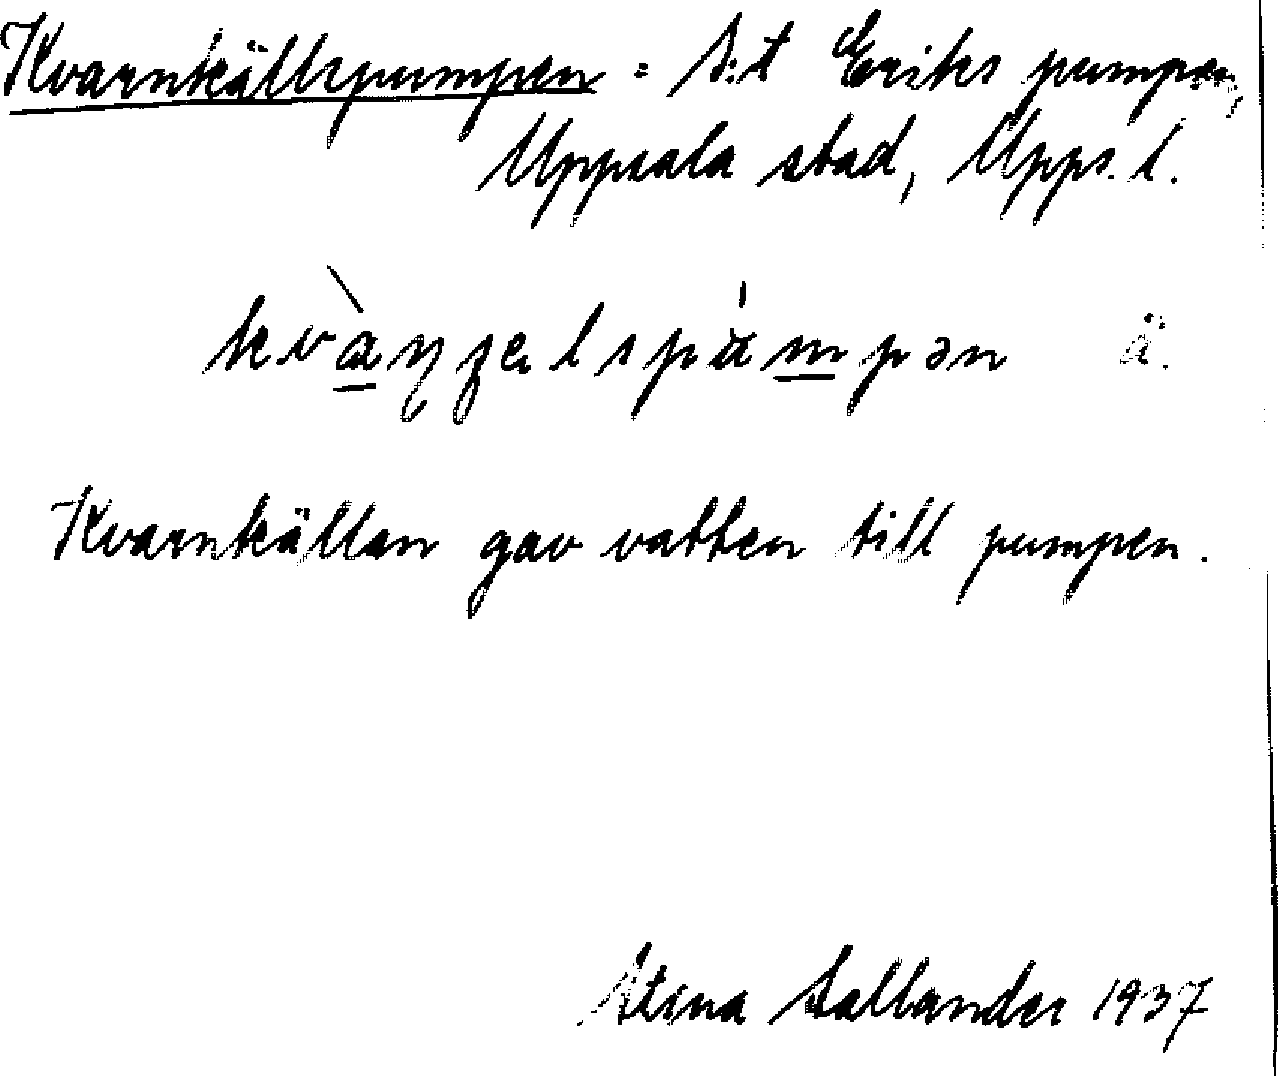 Kvarnkällspumpen = S:t Eriks pumpen,
Uppsala stad, Upps. l.
ä.
Kvarnkällan gav vatten till pumpen.
Stina Sallander 1937